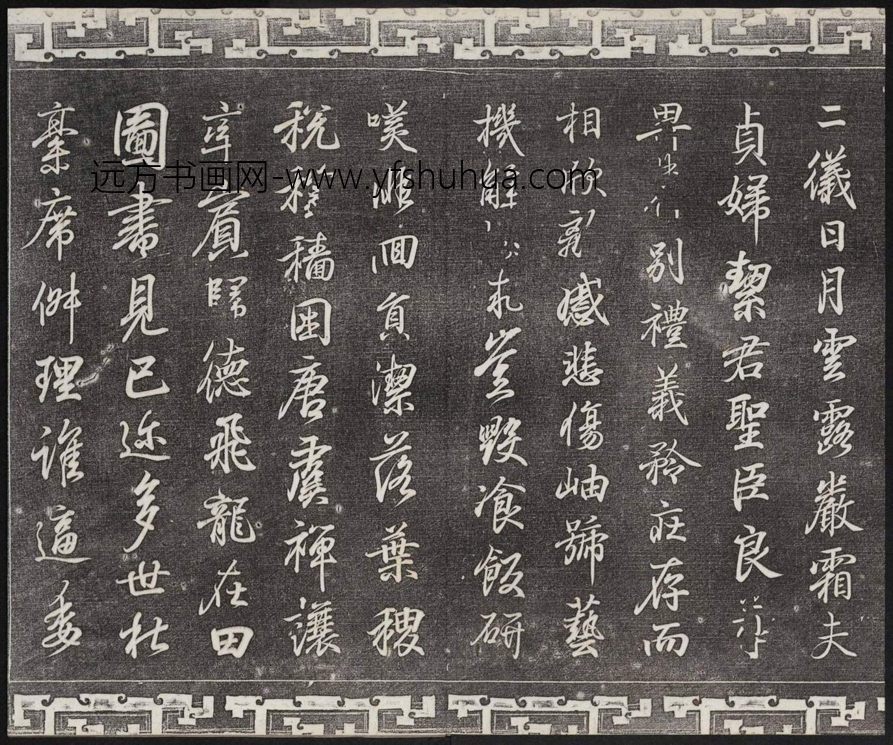 二儀日月雲露嚴霜夫
貞婦絜君聖臣良
別禮義矜莊存而
相欣感悲傷岫號藝
機解野飡飯研
囬貞潔落葉稷
稅穡困唐虞禪讓
率賓歸德飛龍在田
圖書見已迩多世杜
稾席舛理誰逼委
远方书画网-www.yfshuhua.com